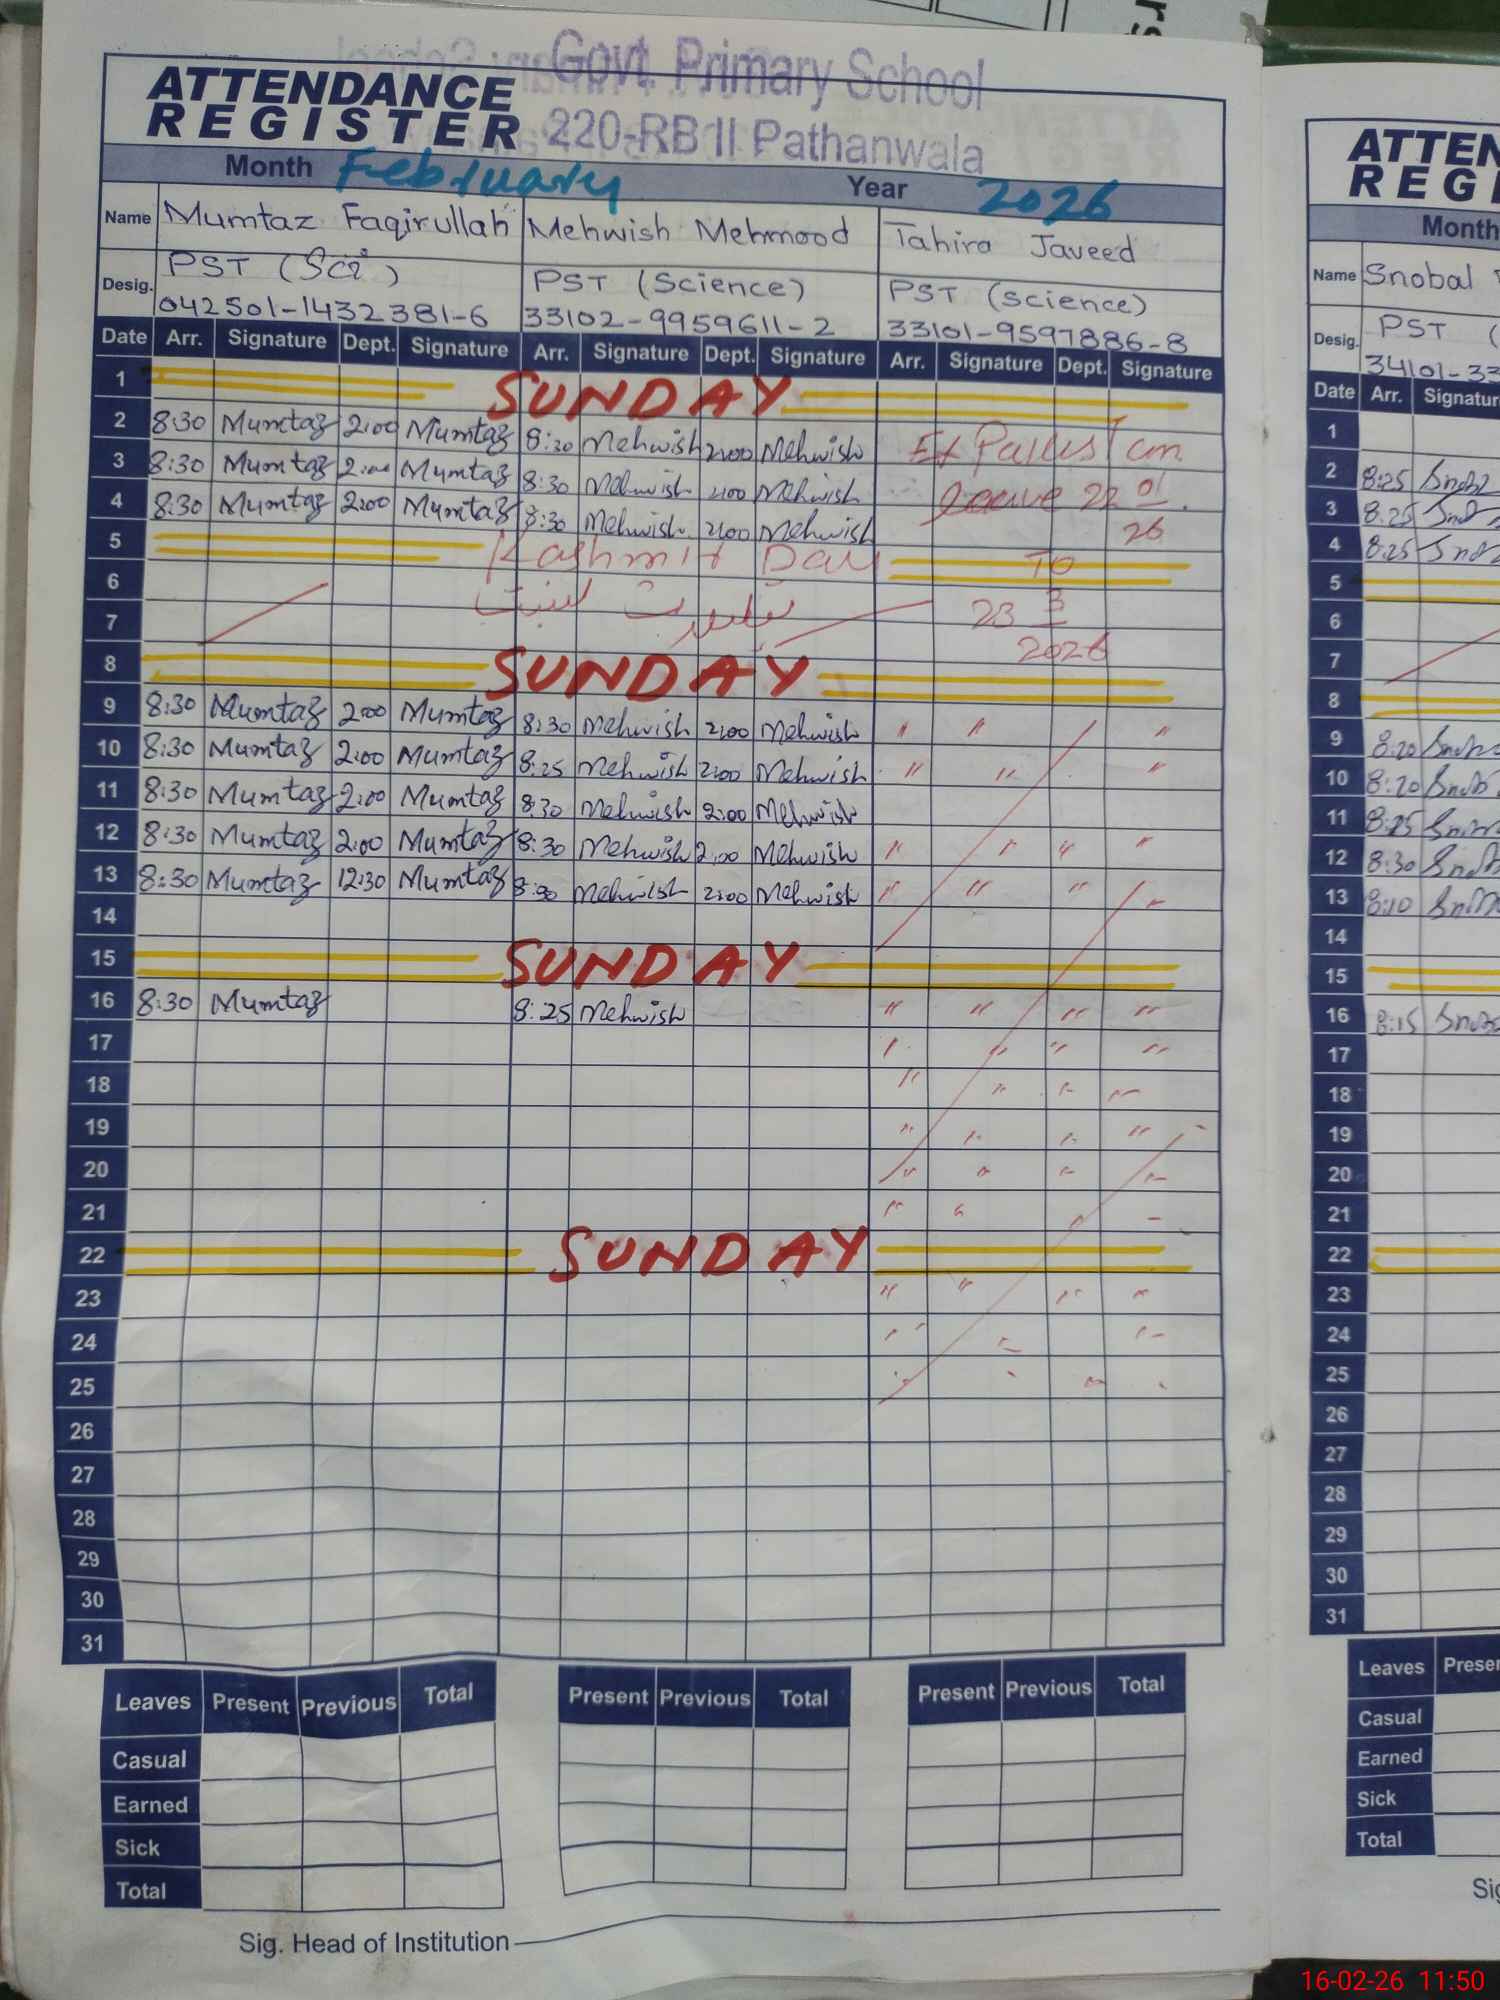 Govt. Primary School
220-RB II Pathanwala
ATTENDANCE
REGISTER
Month February Year 2026
Name Mumtaz Faqirullah Mehwish Mehmood Tahira Javeed
Desig. PST (Sci) PST (Science) PST (science)
042501-1432381-6 33102-9959611-2 33101-9597886-8
Date Arr. Signature Dept. Signature Arr. Signature Dept. Signature Arr. Signature Dept. Signature
1 SUNDAY
2 8:30 Mumtaz 2:00 Mumtaz 8:30 Mehwish 2:00 Mehwish
3 8:30 Mumtaz 2:00 Mumtaz 8:30 Mehwish 2:00 Mehwish
4 8:30 Mumtaz 2:00 Mumtaz 8:30 Mehwish 2:00 Mehwish leave 22 01
26
5 Kashmir Day TO
6
7 23 3
2026
8 SUNDAY
9 8:30 Mumtaz 2:00 Mumtaz 8:30 Mehwish 2:00 Mehwish " " "
10 8:30 Mumtaz 2:00 Mumtaz 8:25 Mehwish 2:00 Mehwish " " "
11 8:30 Mumtaz 2:00 Mumtaz 8:30 Mehwish 2:00 Mehwish
12 8:30 Mumtaz 2:00 Mumtaz 8:30 Mehwish 2:00 Mehwish " " " "
13 8:30 Mumtaz 12:30 Mumtaz 8:30 Mehwish 2:00 Mehwish " " " "
14
15 SUNDAY
16 8:30 Mumtaz 8:25 Mehwish " " " "
17 " " " "
18 " " " "
19 " " " "
20 " " " "
21 " "
22 SUNDAY
23 " " " "
24
25
26
27
28
29
30
31
Leaves Present Previous Total Present Previous Total Present Previous Total
Casual
Earned
Sick
Total
Sig. Head of Institution
ATTEN
REGI
Month
Name Snobal
Desig. PST (
34101-33
Date Arr. Signatur
1
2 8:25
3 8:25
4 8:25
5
6
7
8
9 8:20
10 8:20
11 8:25
12 8:30
13 8:10
14
15
16 8:15
17
18
19
20
21
22
23
24
25
26
27
28
29
30
31
Leaves Presen
Casual
Earned
Sick
Total
Sig
16-02-26 11:50